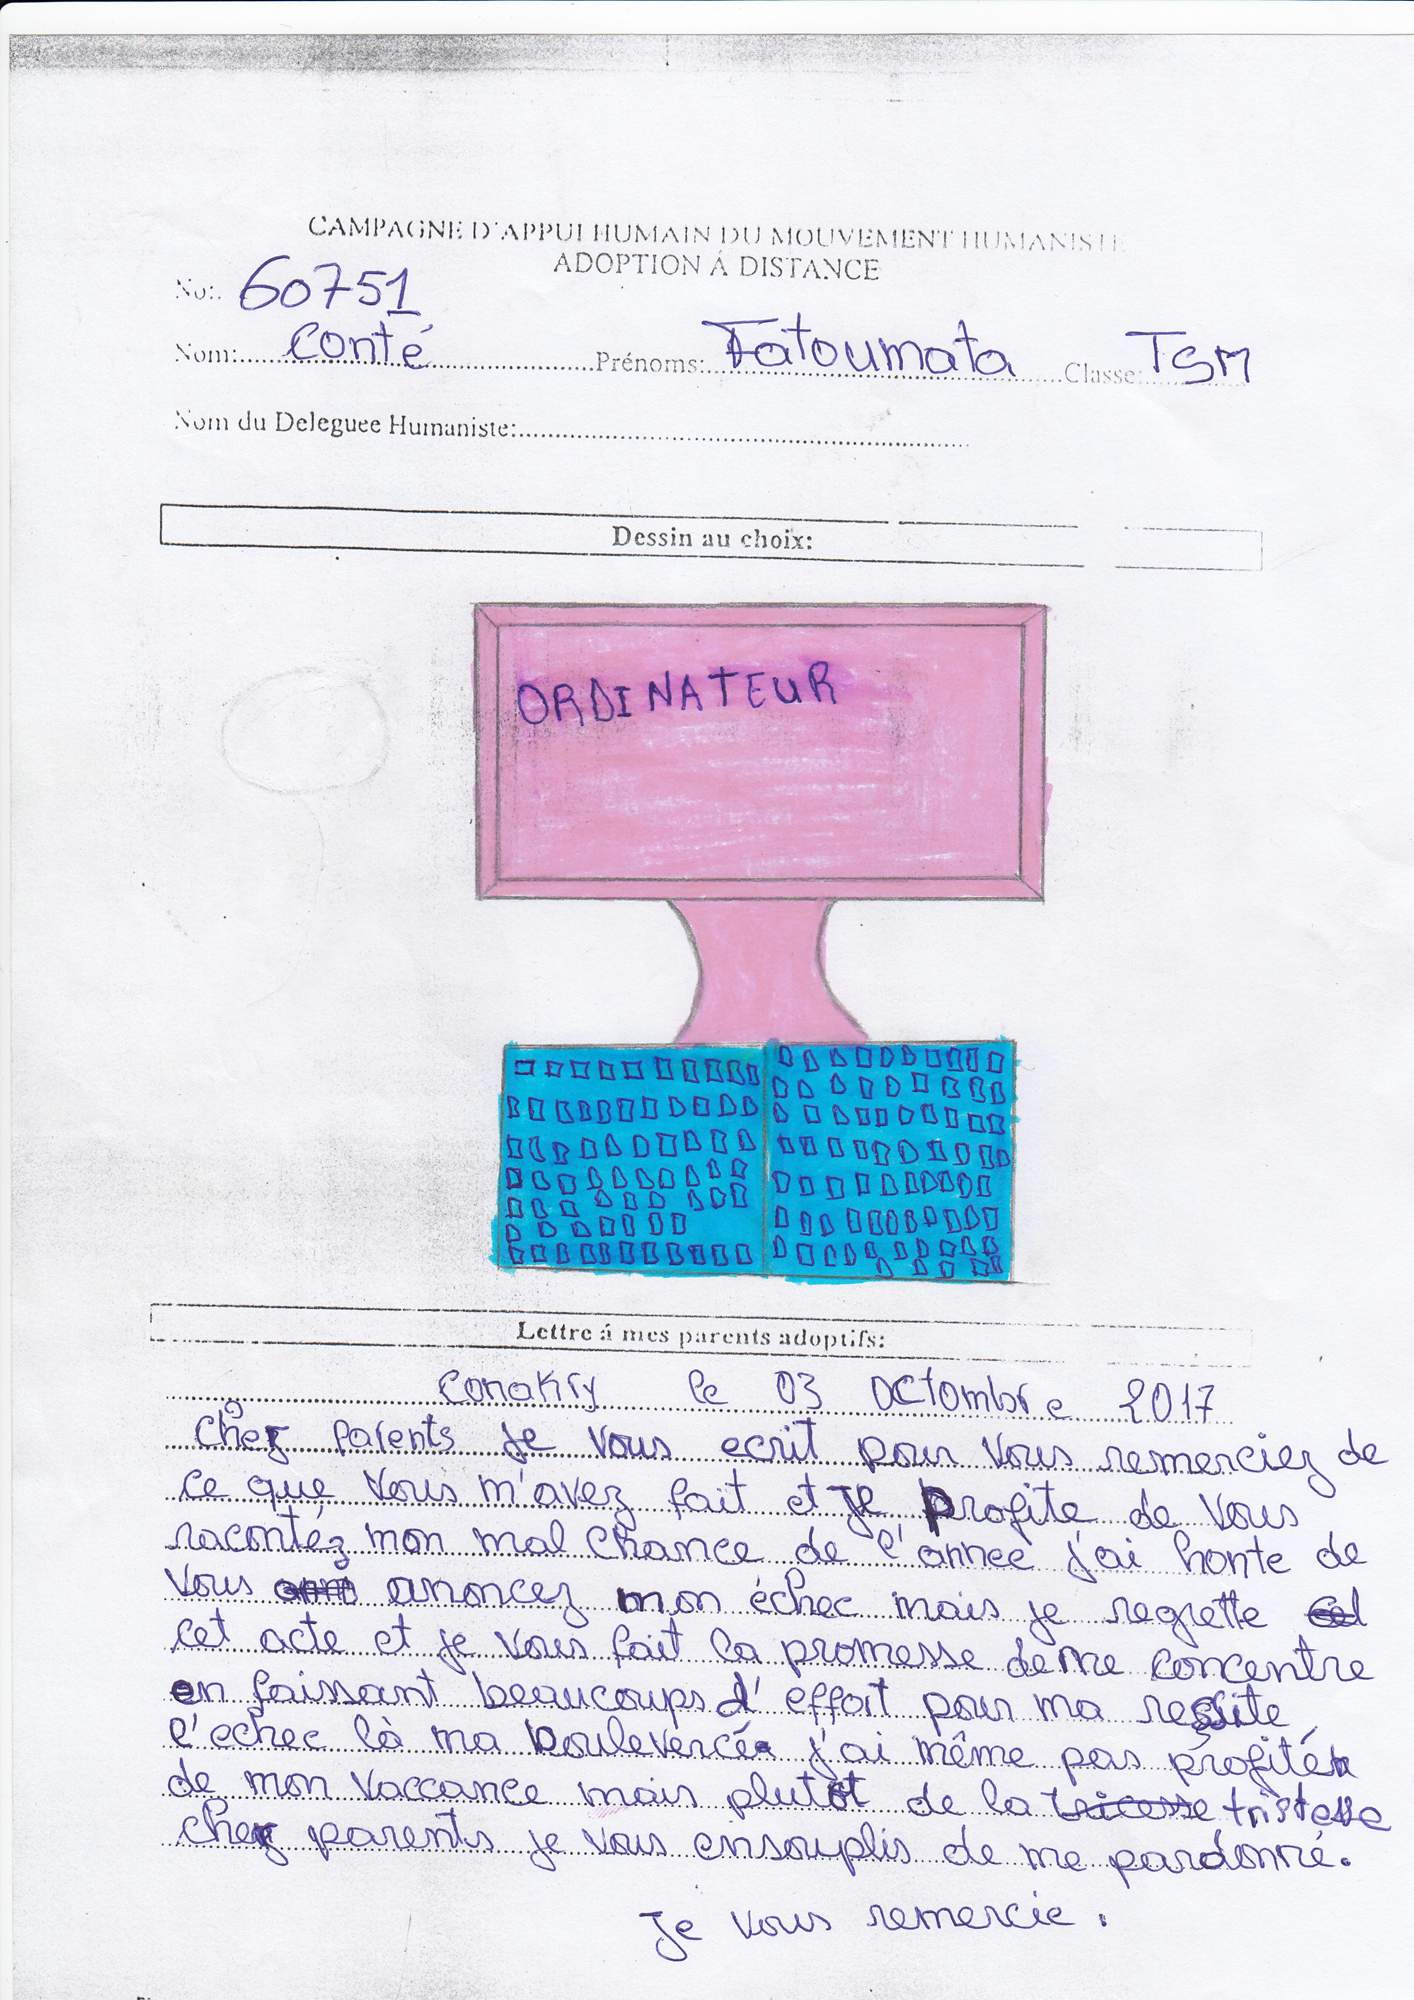 CAMPAGNE D'APPUI HUMAIN DU MOUVEMENT HUMANISTE
ADOPTION Á DISTANCE
No:. 60751
Nom:....Conté....Prénoms:..Fatoumata...Classe:TSM
Nom du Deleguee Humaniste:....
Dessin au choix:
ORDINATEUR
Lettre á mes parents adoptifs:
Conakry le 03 Octombre 2017
Cher parents je vous ecrit pour vous remerciez de
ce que vous m'avez fait et je profite de vous
racontéz mon mal chance de l'année j'ai honte de
vous anoncez mon échec mais je regrette
cet acte et je vous fait la promesse de me concentre
en faissant beaucoups d'effort pour ma resuite
l'echec là ma boulevercé j'ai même pas profité
de mon vaccance mais plutôt de la tristesse
cher parents je vous ensouplis de me pardonné.
Je vous remercie.